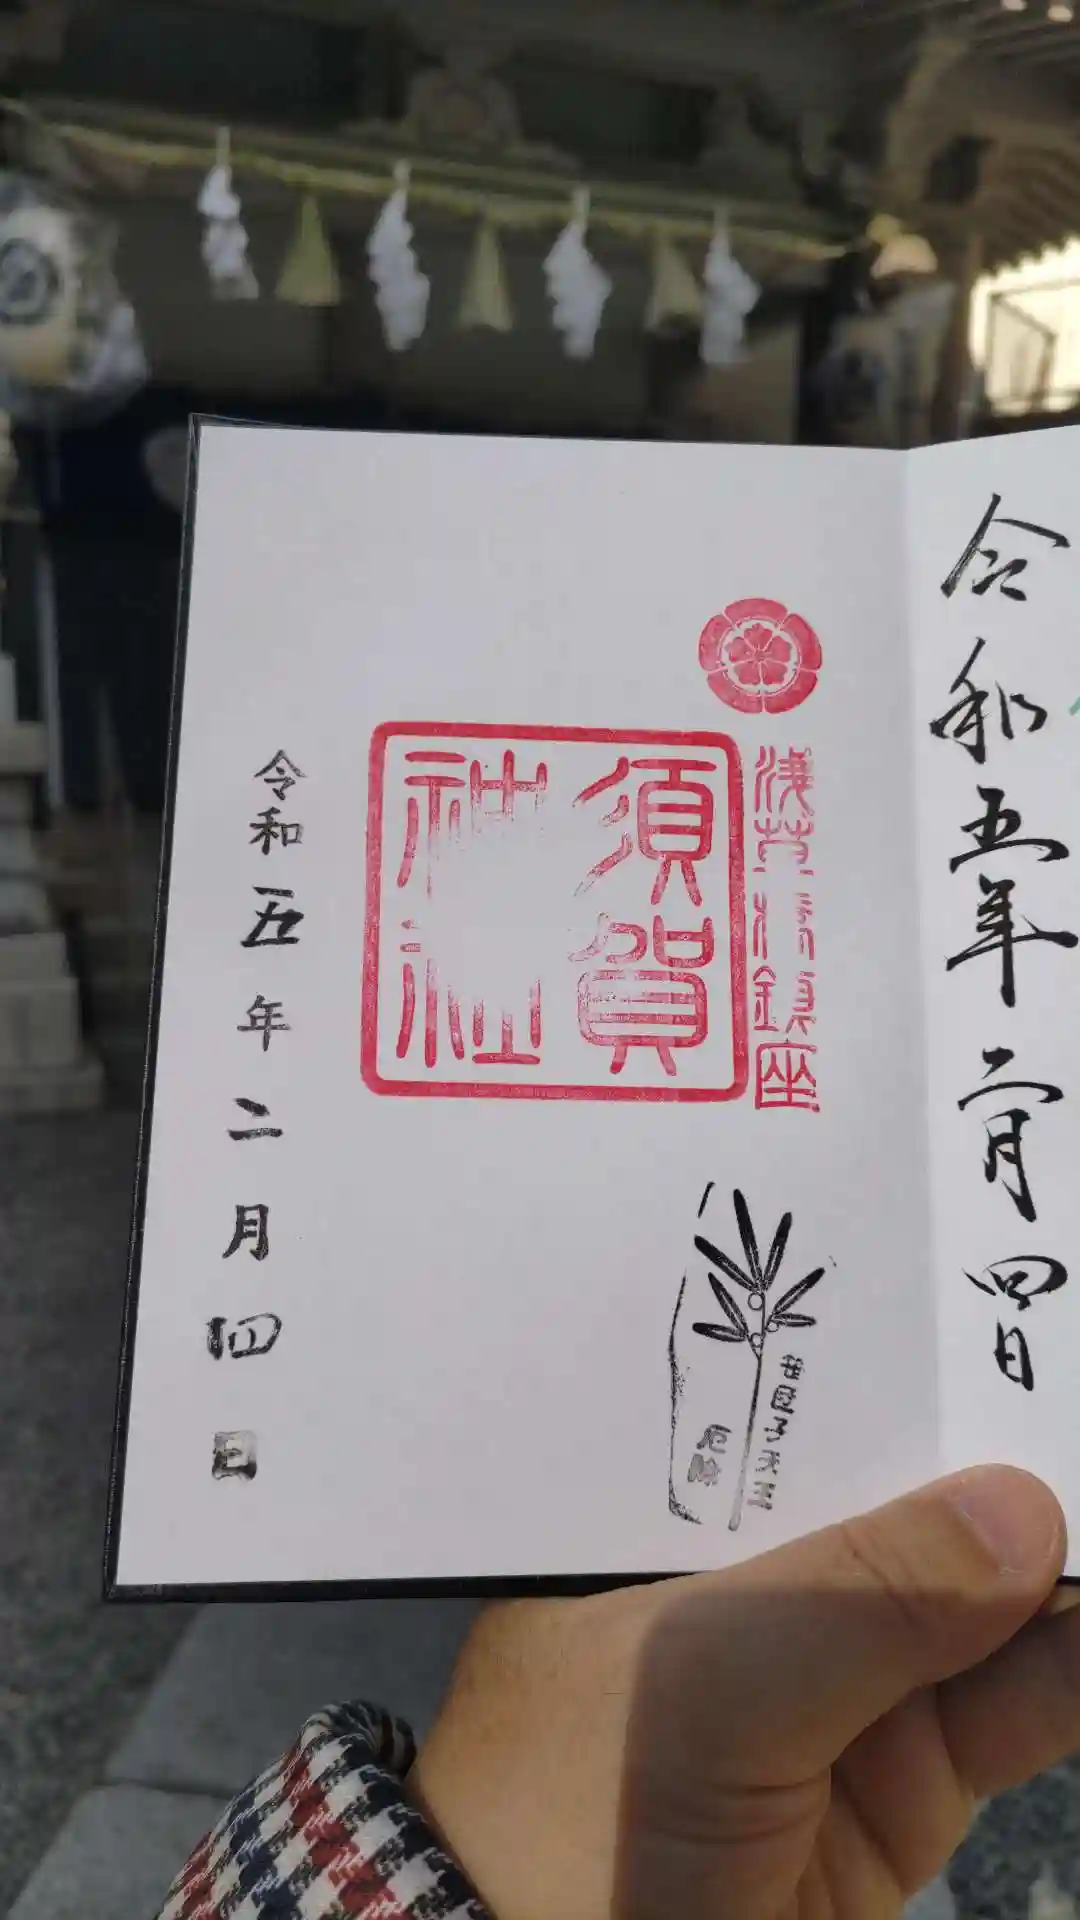 令和五年二月四日
浅草橋鎮座
須賀
神社
笹団子天王
厄除
令和五年二月四日